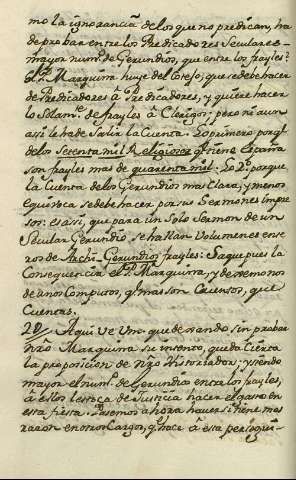 mo la ignorancia de los que no predican, ha
de probar entre los Predicadores Seculares
mayor num.º de Gerundios, que entre los frayles.
el P. Marquina huye del Cotejo, que se debe hacer
de Predicadores à Predicadores, y quiere hacer
lo solam.te de frayles à Clerigos; pero ni aun
asi le ha de Salir la Cuenta. Lo primero porq.e
de los Setenta mil Religiosos q.e tiene España
son frayles mas de quarenta mil. Lo 2.º porque
la Cuenta de los Gerundios mas Clara, y menos
equivoca se debe hacer por sus Sermones impre
sos: es asi, que para un Solo Sermon de un
Secular Gerundio, se hallan Volumenes ente
ros de Archi-Gerundios frayles: Saque pues la
Consequencia el P. Marquina, y dexemonos
de unos Computos, q.e mas son Cuentos, que
Cuentas.
20 Aqui ve Vm. que dexando sin probar
Nro Marquina su intento, queda Cierta
la proposicion de Nro Historiador; y siendo
mayor el num.º de Gerundios entre los frayles,
à ellos les toca de Justicia hacer el gasto en
esta fiesta. Pasemos ahora haver si tiene mas
razon en otros Cargos, q.e hace à esta